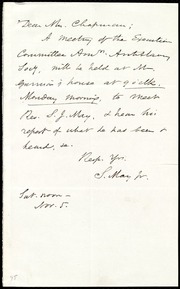 Dear Mr. Chapman;
A meeting of the Executive
Committee Amn. Antislavery
Socy. will be held at Mr.
Garrison's house at 9 o'clk.
Monday morning, to meet
Rev. S. J. May, & hear his
report of what he has seen &
heard, &c.
Resp. Yrs.
S. May, Jr.
Sat. noon —
Nov. 5.